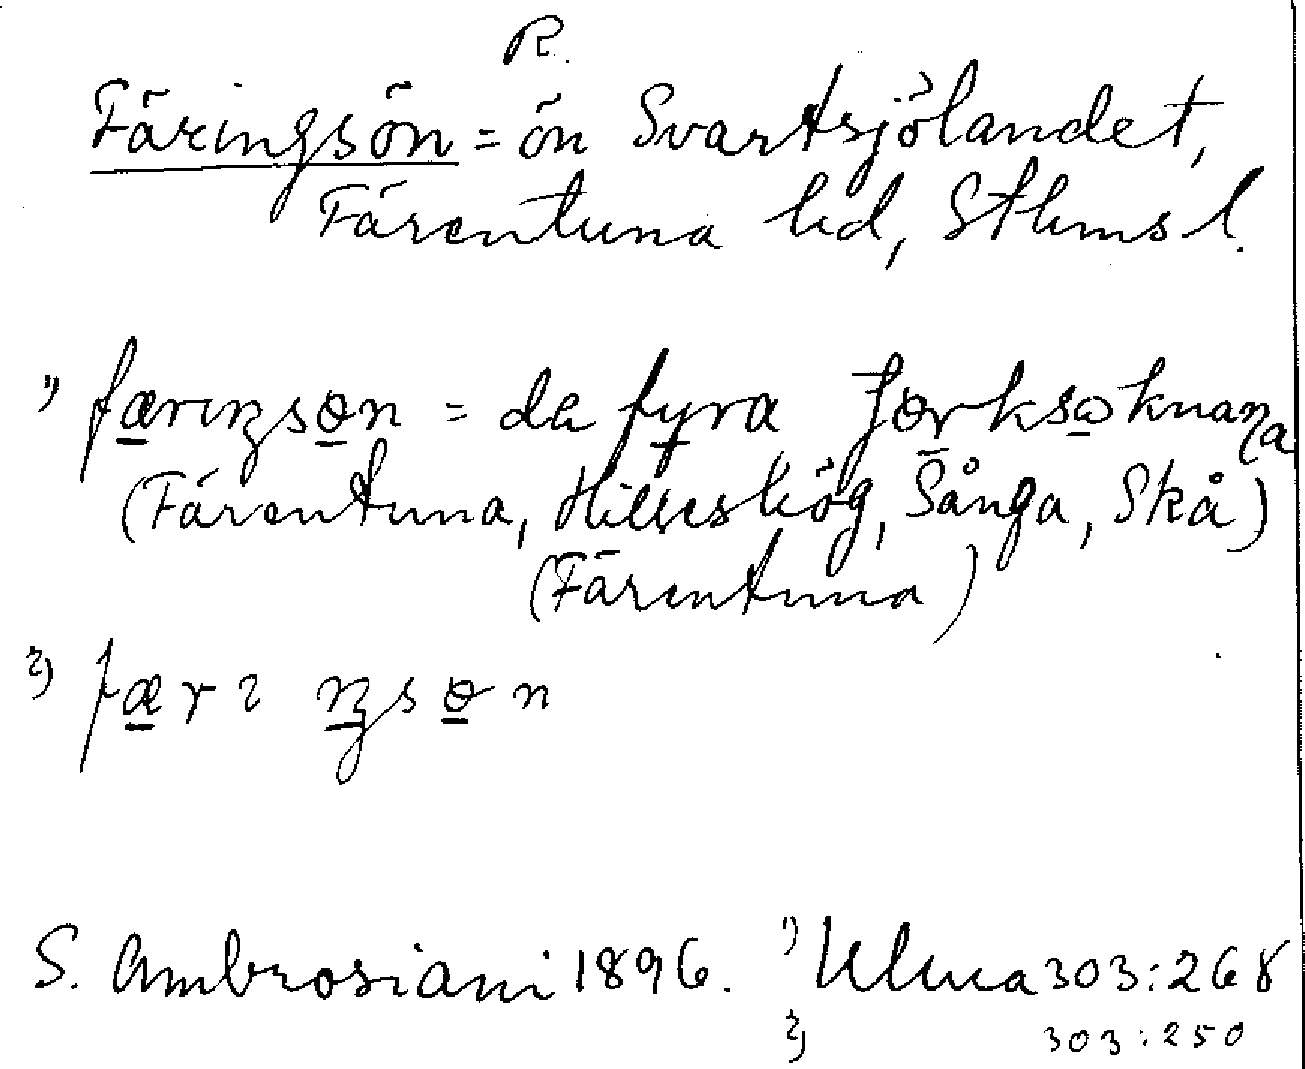 R.
Färingsön = ön Svartsjölandet,
Färentuna hd, Sthms l.
1) færıŋsøn = de fyra
(Färentuna, Hilleshög, Sånga, Skå)
(Färentuna)
2) færıŋsøn
S. Ambrosiani 1896. 1) Ulma 303:268
2) 303:250